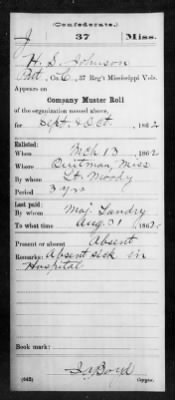 (Confederate.)
J 37 Miss.
H. S. Johnson
Pvt, Co. C, 37 Reg't Mississippi Vols.
Appears on
Company Muster Roll
of the organization named above,
for Sept. & Oct., 1862
Enlisted:
When Mch 13, 1862
Where Quitman, Miss
By whom Lt. Moody
Period 3 yrs
Last paid:
By whom Maj. Landry
To what time Aug. 31, 1862
Present or absent Absent
Remarks: Absent sick in
Hospital
Book mark:
Boyd
(642) Copyist.